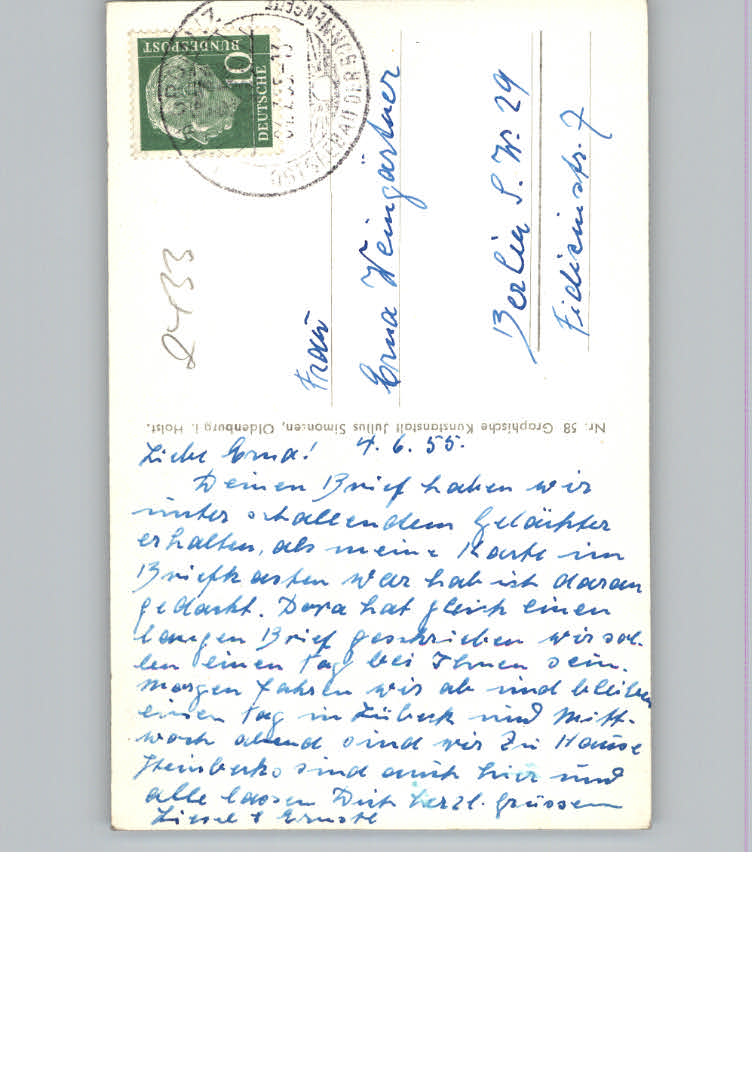 Liebe Erna! 4. 6. 55.
Deinen Brief haben wir
unter schallendem Gelächter
erhalten, als meine Karte im
Briefkasten war hab ich daran
gedacht. Dora hat gleich einen
langen Brief geschrieben wir sol-
len einen Tag bei Ihnen sein.
Morgen fahren wir ab und bleiben
einen Tag in Lübeck und Mitt-
woch abend sind wir zu Hause
sind auch hier und
alle lassen Dich herzl. grüssen
Liesel & Ernstl
Frau
Erna Weingärtner
Berlin S.W. 29
Fidicinstr. 7
Nr. 58 Graphische Kunstanstalt Julius Simonsen, Oldenburg i. Holst.
DEUTSCHE
BUNDESPOST
10
OSTSEEBAD DER SONNENSEITE
2433